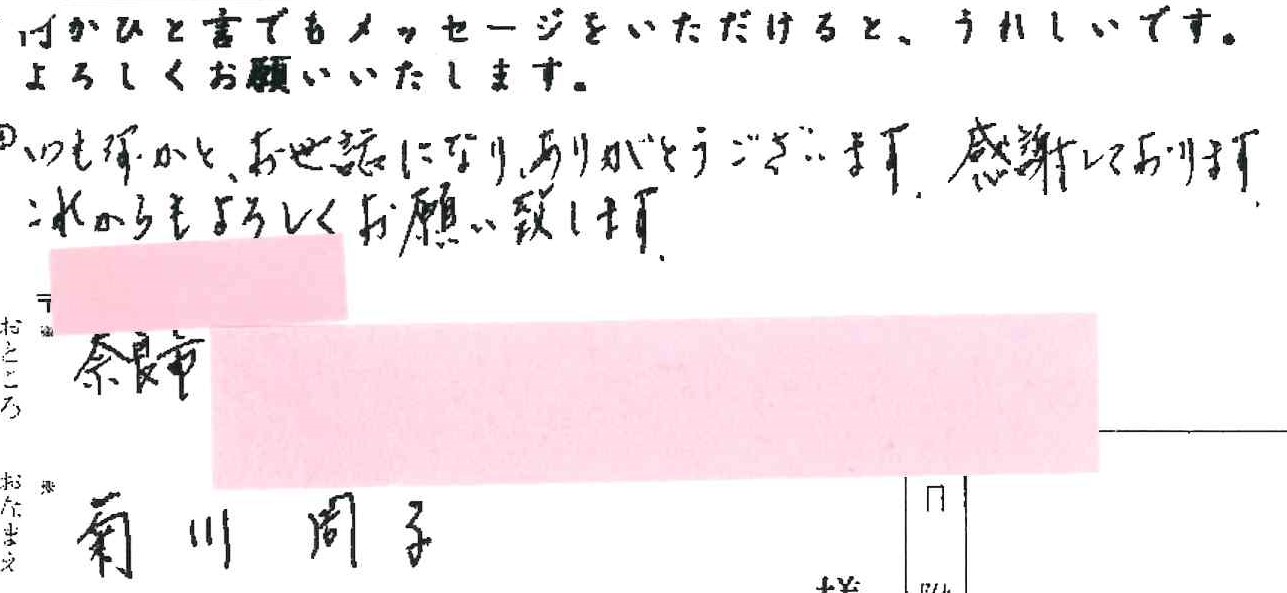 何かひと言でもメッセージをいただけると、うれしいです。
よろしくお願いいたします。
いつも何かと、お世話になり、ありがとうございます. 感謝しております.
これからもよろしくお願い致します.
〒
おところ
※
奈良市
おなまえ
※
菊川 周子
様